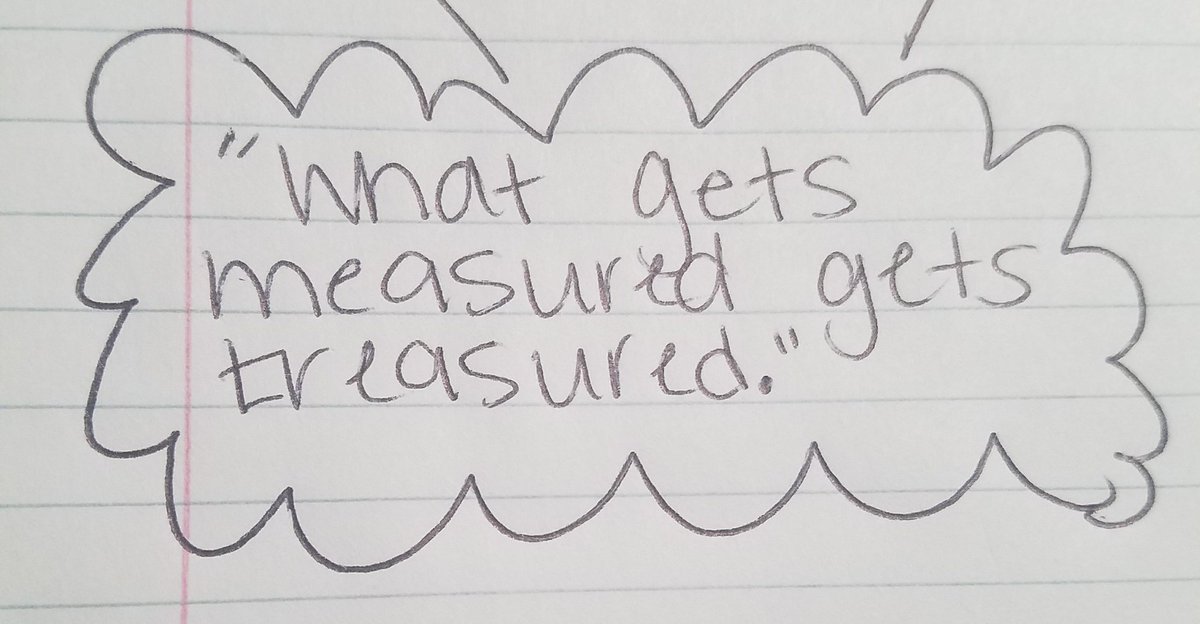 "What gets
measured gets
treasured."